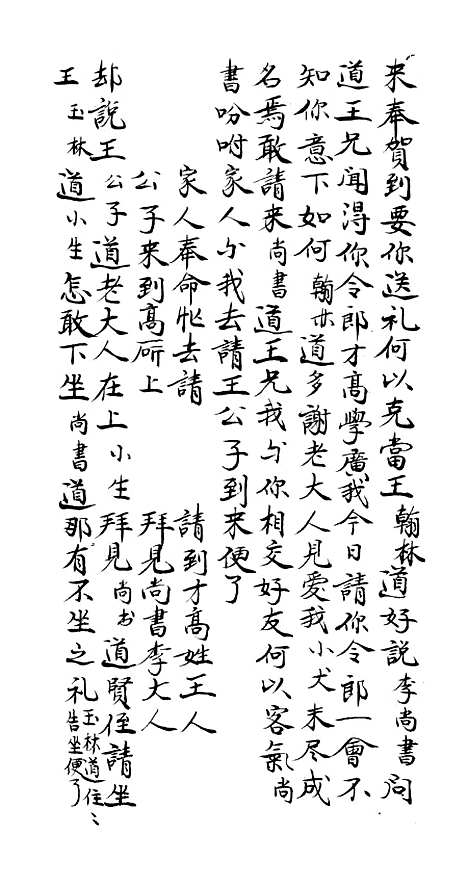 来奉賀到要你送礼何以克當王翰林道好説李尚書问
道王兄闻得你令郎才高學廣我今日請你令郎一會不
知你意下如何翰林道多謝老大人見爱我小犬未尽成
名焉敢請来尚書道王兄我与你相交好友何以客氣尚
書吩咐家人与我去請王公子到来便了
家人奉命忙去請 請到才高姓王人
公子来到高厛上 拜見尚書李大人
却説王公子道老大人在上小生拜見尚书道賢侄請坐
王玉林道小生怎敢下坐尚書道那有不坐之礼玉林道住〻
告坐便了